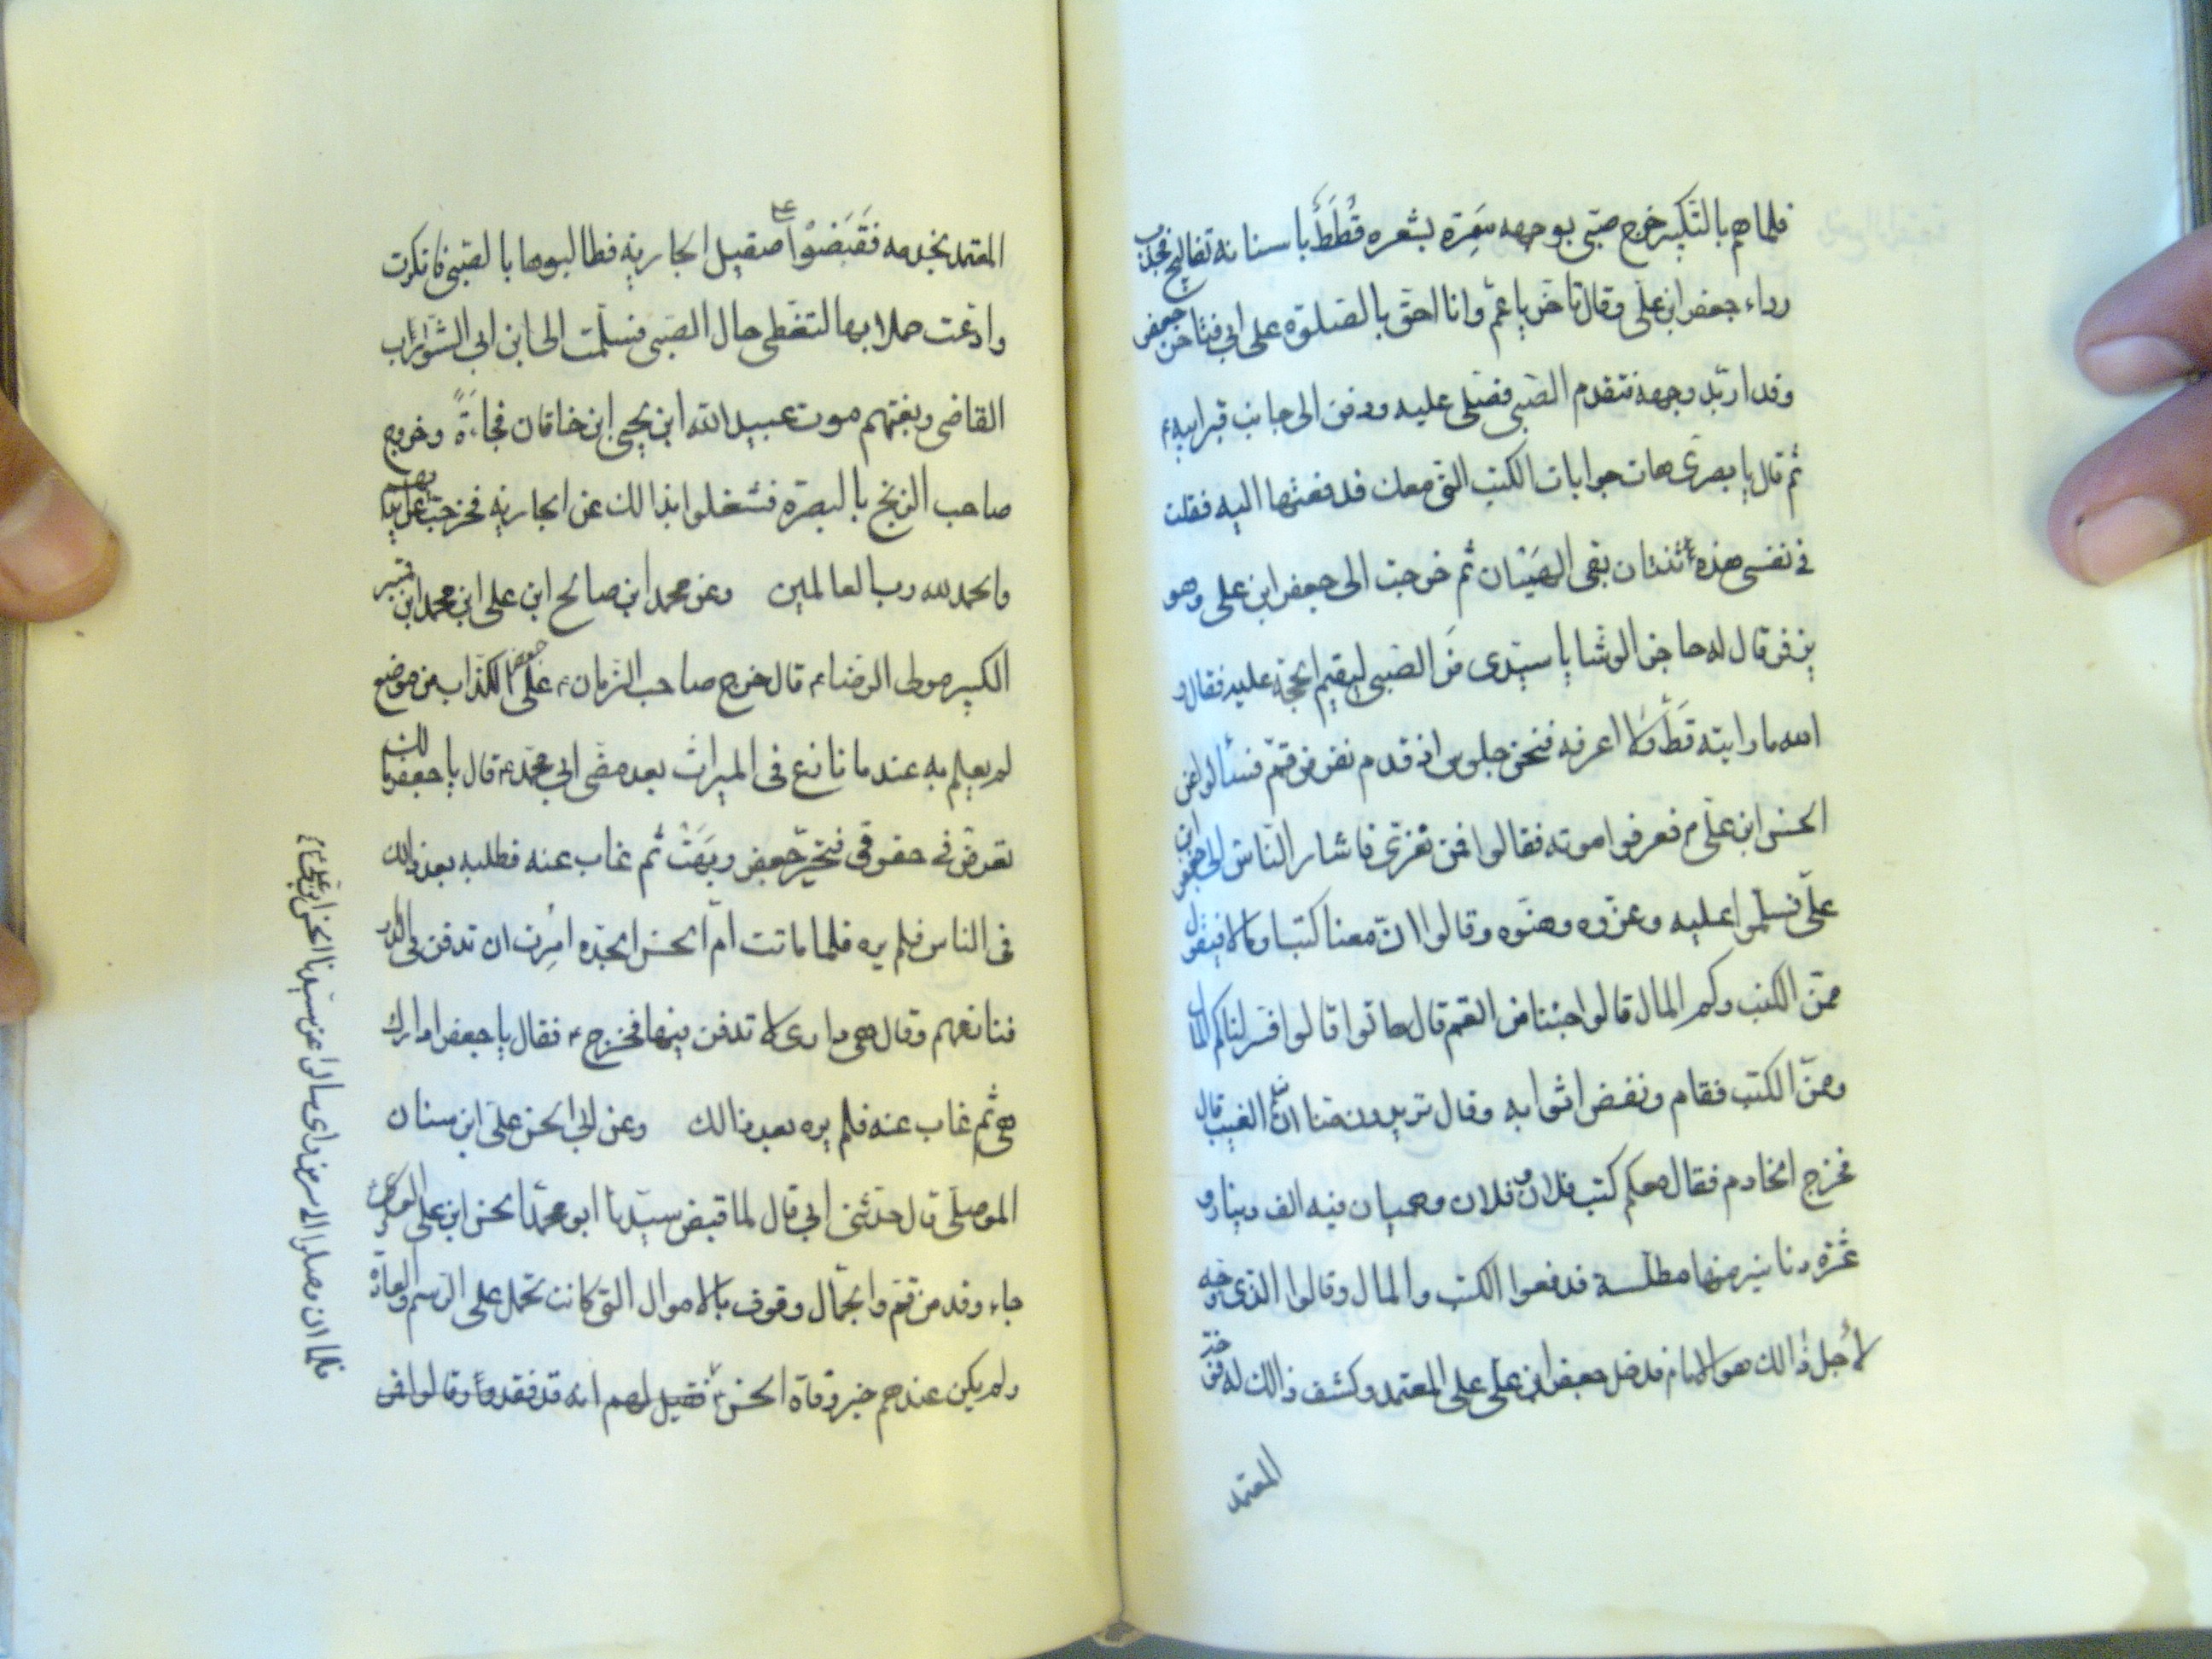 فلما هم بالتكبير خرج صبي بوجهه سمرة بشعره قطط باسنانه تفاليج فجذب
رداء جعفر ابن علي وقال تأخر يا عم وانا احق بالصلوة على ابي فتأخر جعفر
وقد اربد وجهه فتقدم الصبي فصلى عليه ودفن الى جانب قبر ابيه ع
ثم قال يا بصرى هات جوابات الكتب التي معك فدفعتها اليه فقلت
في نفسي هذه اثنتان بقى الهميان ثم خرجت الى جعفر ابن علي وهو
يزفر قال له حاجز الوشا يا سيدى من الصبي ليقيم الحجة عليه فقال و
الله ما رايته قط ولا اعرفه فنحن جلوس اذ قدم نفر من قم فسألوا عن
الحسن ابن علي ع فعرفوا موته فقالوا فمن نعزى فاشار الناس الى جعفر ابن
علي فسلموا عليه وعزوه وهنوه وقالوا ان معنا كتبا ومالا فيقول
ممن الكتب وكم المال قالوا جئنا من القم قال هاتوا قالوا فسر لنا كم المال
وممن الكتب فقام ونفض اثوابه وقال تريدون منا ان نعلم الغيب قال
فخرج الخادم فقال معكم كتب فلان و فلان وهميان فيه الف دينار و
عشرة دنانير منها مطلسة فدفعوا الكتب والمال وقالوا الذى وجه
لاجل ذالك هو الامام فدخل جعفر ابن علي على المعتمد وكشف ذالك له
المعتمد
المعتمد بخدمه فقبضوا على صقيل الجارية فطالبوها بالصبي فانكرت
وادعت حملا بها لتغطى حال الصبي فسلمت الى ابن ابي الشوارب
القاضى وبغتهم موت عبيد الله ابن يحيى ابن خاقان فجاءة وخروج
صاحب الزنج بالبصرة فشغلوا بذالك عن الجارية فخرجت عن ايديهم
والحمد لله رب العالمين وعن محمد ابن صالح ابن علي ابن محمد ابن قنبر
الكبير مولى الرضا ع قال خرج صاحب الزمان ع على جعفر الكذاب من موضع
لم يعلم به عند ما نازع في الميراث بعد مضى ابي محمد ع قال يا جعفر ما لك
تعرض في حقوقي فتحير جعفر وبهت ثم غاب عنه فطلبه بعد ذالك
في الناس فلم يره فلما ماتت ام الحسن الجده امرت ان تدفن في الدار
فنازعهم وقال هي دارى لا تدفن فيها فخرج ع فقال يا جعفر ادارك
هي ثم غاب عنه فلم يره بعد ذالك وعن ابي الحسن علي ابن سنان
الموصلي قال حدثني ابي قال لما قبض سيدنا ابو محمد الحسن ابن علي العسكرى
جاء وفد من قم والجمال وقوف بالاموال التي كانت تحمل على الرسم والعادة
ولم يكن عندهم خبر وفاة الحسن ع فقيل لهم انه قد فقد وقالوا فمن
فلما ان وصلوا الى سر من راى سالوا عن سيدنا الحسن ابن علي ع